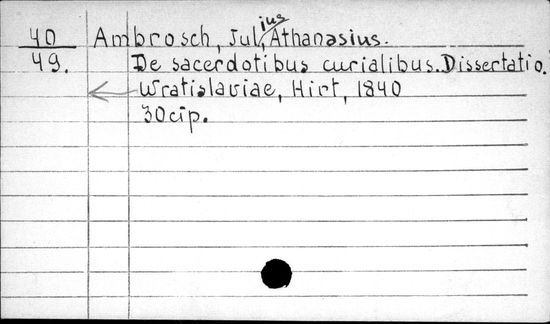 40 Ambrosch, Julius, Athanasius.
49. De sacerdotibus curialibus. Dissertatio.
Wratislaviae, Hirt, 1840
30 cip.